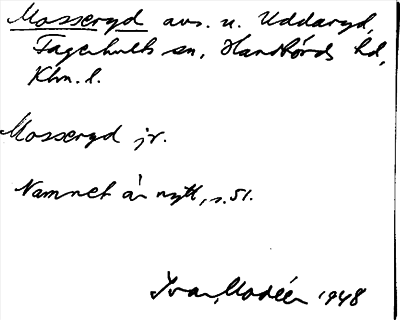 Mosseryd avs. u. Uddaryd,
Fagerhults sn, Handbörds hd,
Klm. l.
Mosseryd jr.
Namnet är nytt, s. 51.
Ivar Modéer 1948